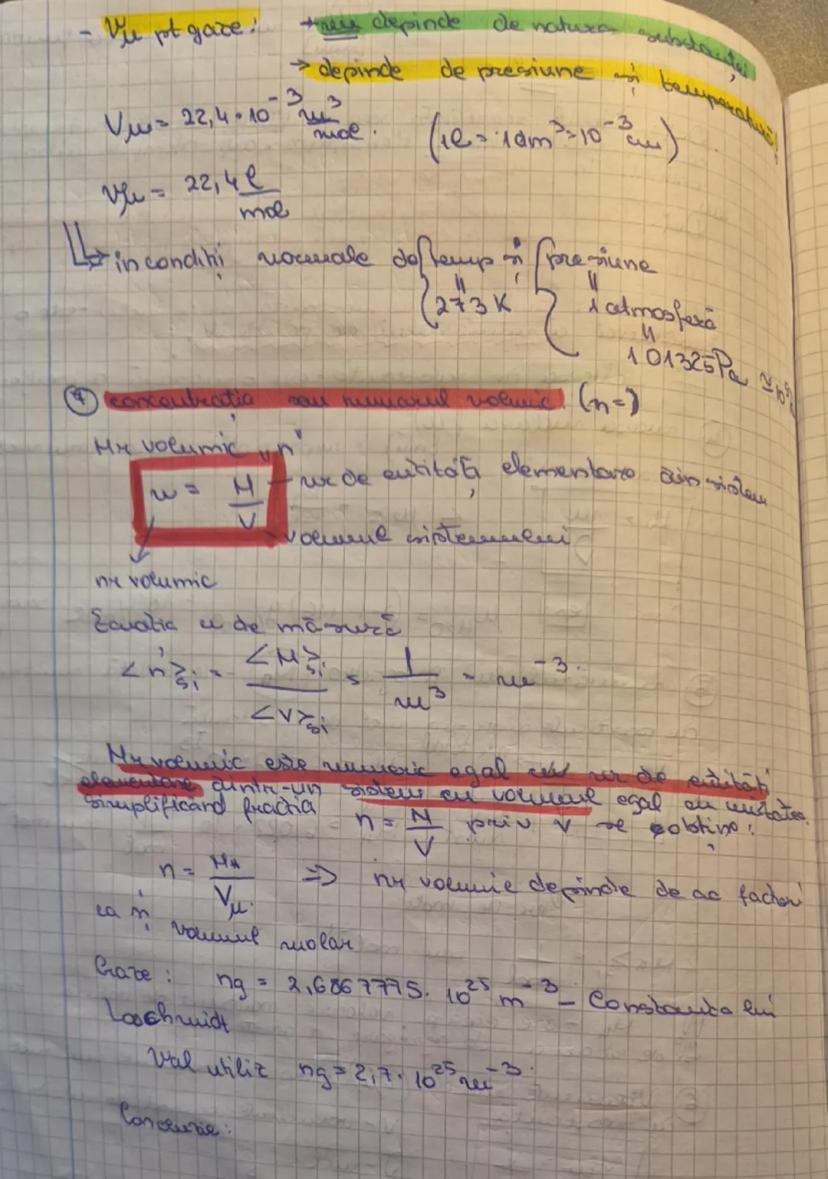 - Vμ pt gaze: → nu depinde de natura substanței
→ depinde de presiune și temperatură
Vμ = 22,4 · 10⁻³ m³/mol. (1l = 1dm³ = 10⁻³ cm)
Vμ = 22,4 l/mol
↳ in condiții normale de { temp și { presiune
" 273 K " 1 atmosferă
" 101325 Pa ≃ 10⁵
④ concentrația sau numărul volumic (n=)
Nr volumic „n"
n = N/V — nr de entități elementare din sistem
volumul sistemului
nr volumic
Ecuația u de măsură
<n>si = <N>si / <V>si = 1/m³ = m⁻³.
Nr volumic este numeric egal cu nr de entități
elementare dintr-un sistem cu volumul egal cu unitatea.
Simplificând fracția n = N/V prin ν se obține:
n = NA/Vμ. => nr volumic depinde de ac factori
ca și volumul molar
Gaze: ng = 2,6867775 · 10²⁵ m⁻³ – Constanta lui
Loschmidt
Val utiliz ng = 2,7 · 10²⁵ m⁻³.
Concluzie: